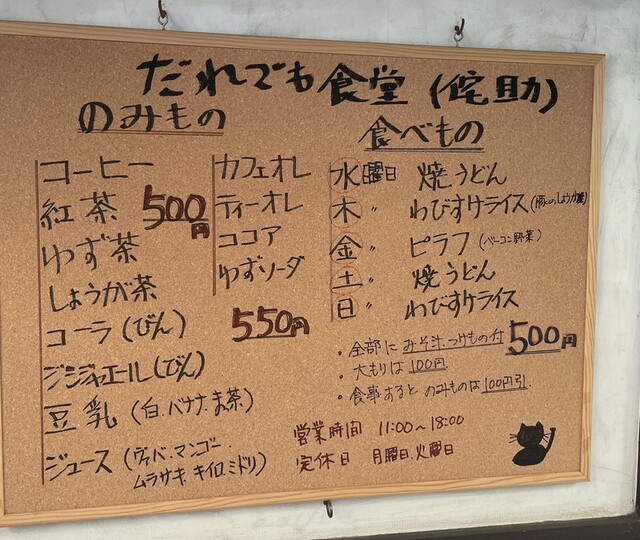 だれでも食堂(侘助)
のみもの
コーヒー
紅茶
ゆず茶
しょうが茶
コーラ(びん)
ジンジャエール(びん)
豆乳(白.バナナ.ま茶)
ジュース(
マンゴー.
ムラサキ.キイロ.ミドリ)
500円
カフェオレ
ティーオレ
ココア
ゆずソーダ
550円
食べもの
水曜日 焼うどん
木 〃 わびすけライス(豚のしょうが焼)
金 〃 ピラフ(ベーコン野菜)
土 〃 焼うどん
日 〃 わびすけライス
・全部にみそ汁.つけもの付 500円
・大もりは100円
・食事するとのみものは100円引.
営業時間 11:00~18:00
定休日 月曜日.火曜日